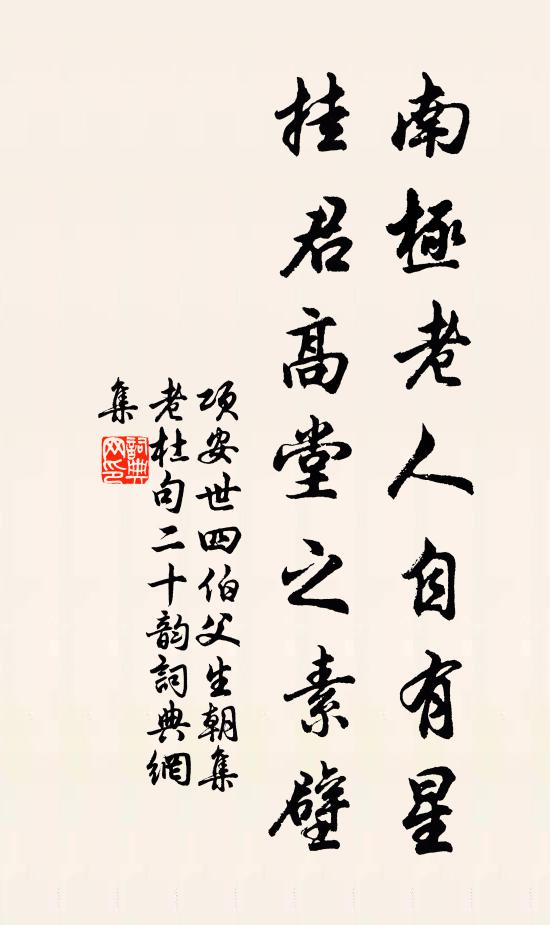 南極老人自有星
挂君高堂之素壁
項安世四伯父生朝集
老杜句二十韵詞典網
集
詞典
網印